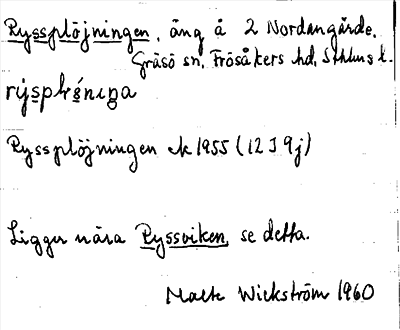 Ryssplöjningen, äng å 2 Nordangärde,
Gräsö sn, Frösåkers hd, Sthlms l.
Ryssplöjningen ek 1955 (12 I 9j)
Ligger nära Ryssviken, se detta.
Malte Wickström 1960